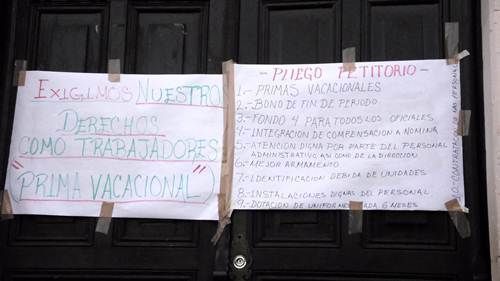 EXIGIMOS NUESTRO
DERECHOS
COMO TRABAJADORES
"PRIMA VACACIONAL"
- PLIEGO PETITORIO -
1.- PRIMAS VACACIONALES
2.- BONO DE FIN DE PERIODO
3.- FONDO 4 PARA TODOS LOS OFICIALES
4.- INTEGRACION DE COMPENSACION A NOMINA
5.- ATENCION DIGNA POR PARTE DEL PERSONAL
ADMINISTRATIVO ASI COMO DE LA DIRECCION
6.- MEJOR ARMAMENTO
7.- IDENTIFICACION DEBIDA DE UNIDADES
8.- INSTALACIONES DIGNAS DEL PERSONAL
9.- DOTACION DE UNIFORMES CADA 6 MESES
10.- CONTRATACION DE MAS PERSONAL